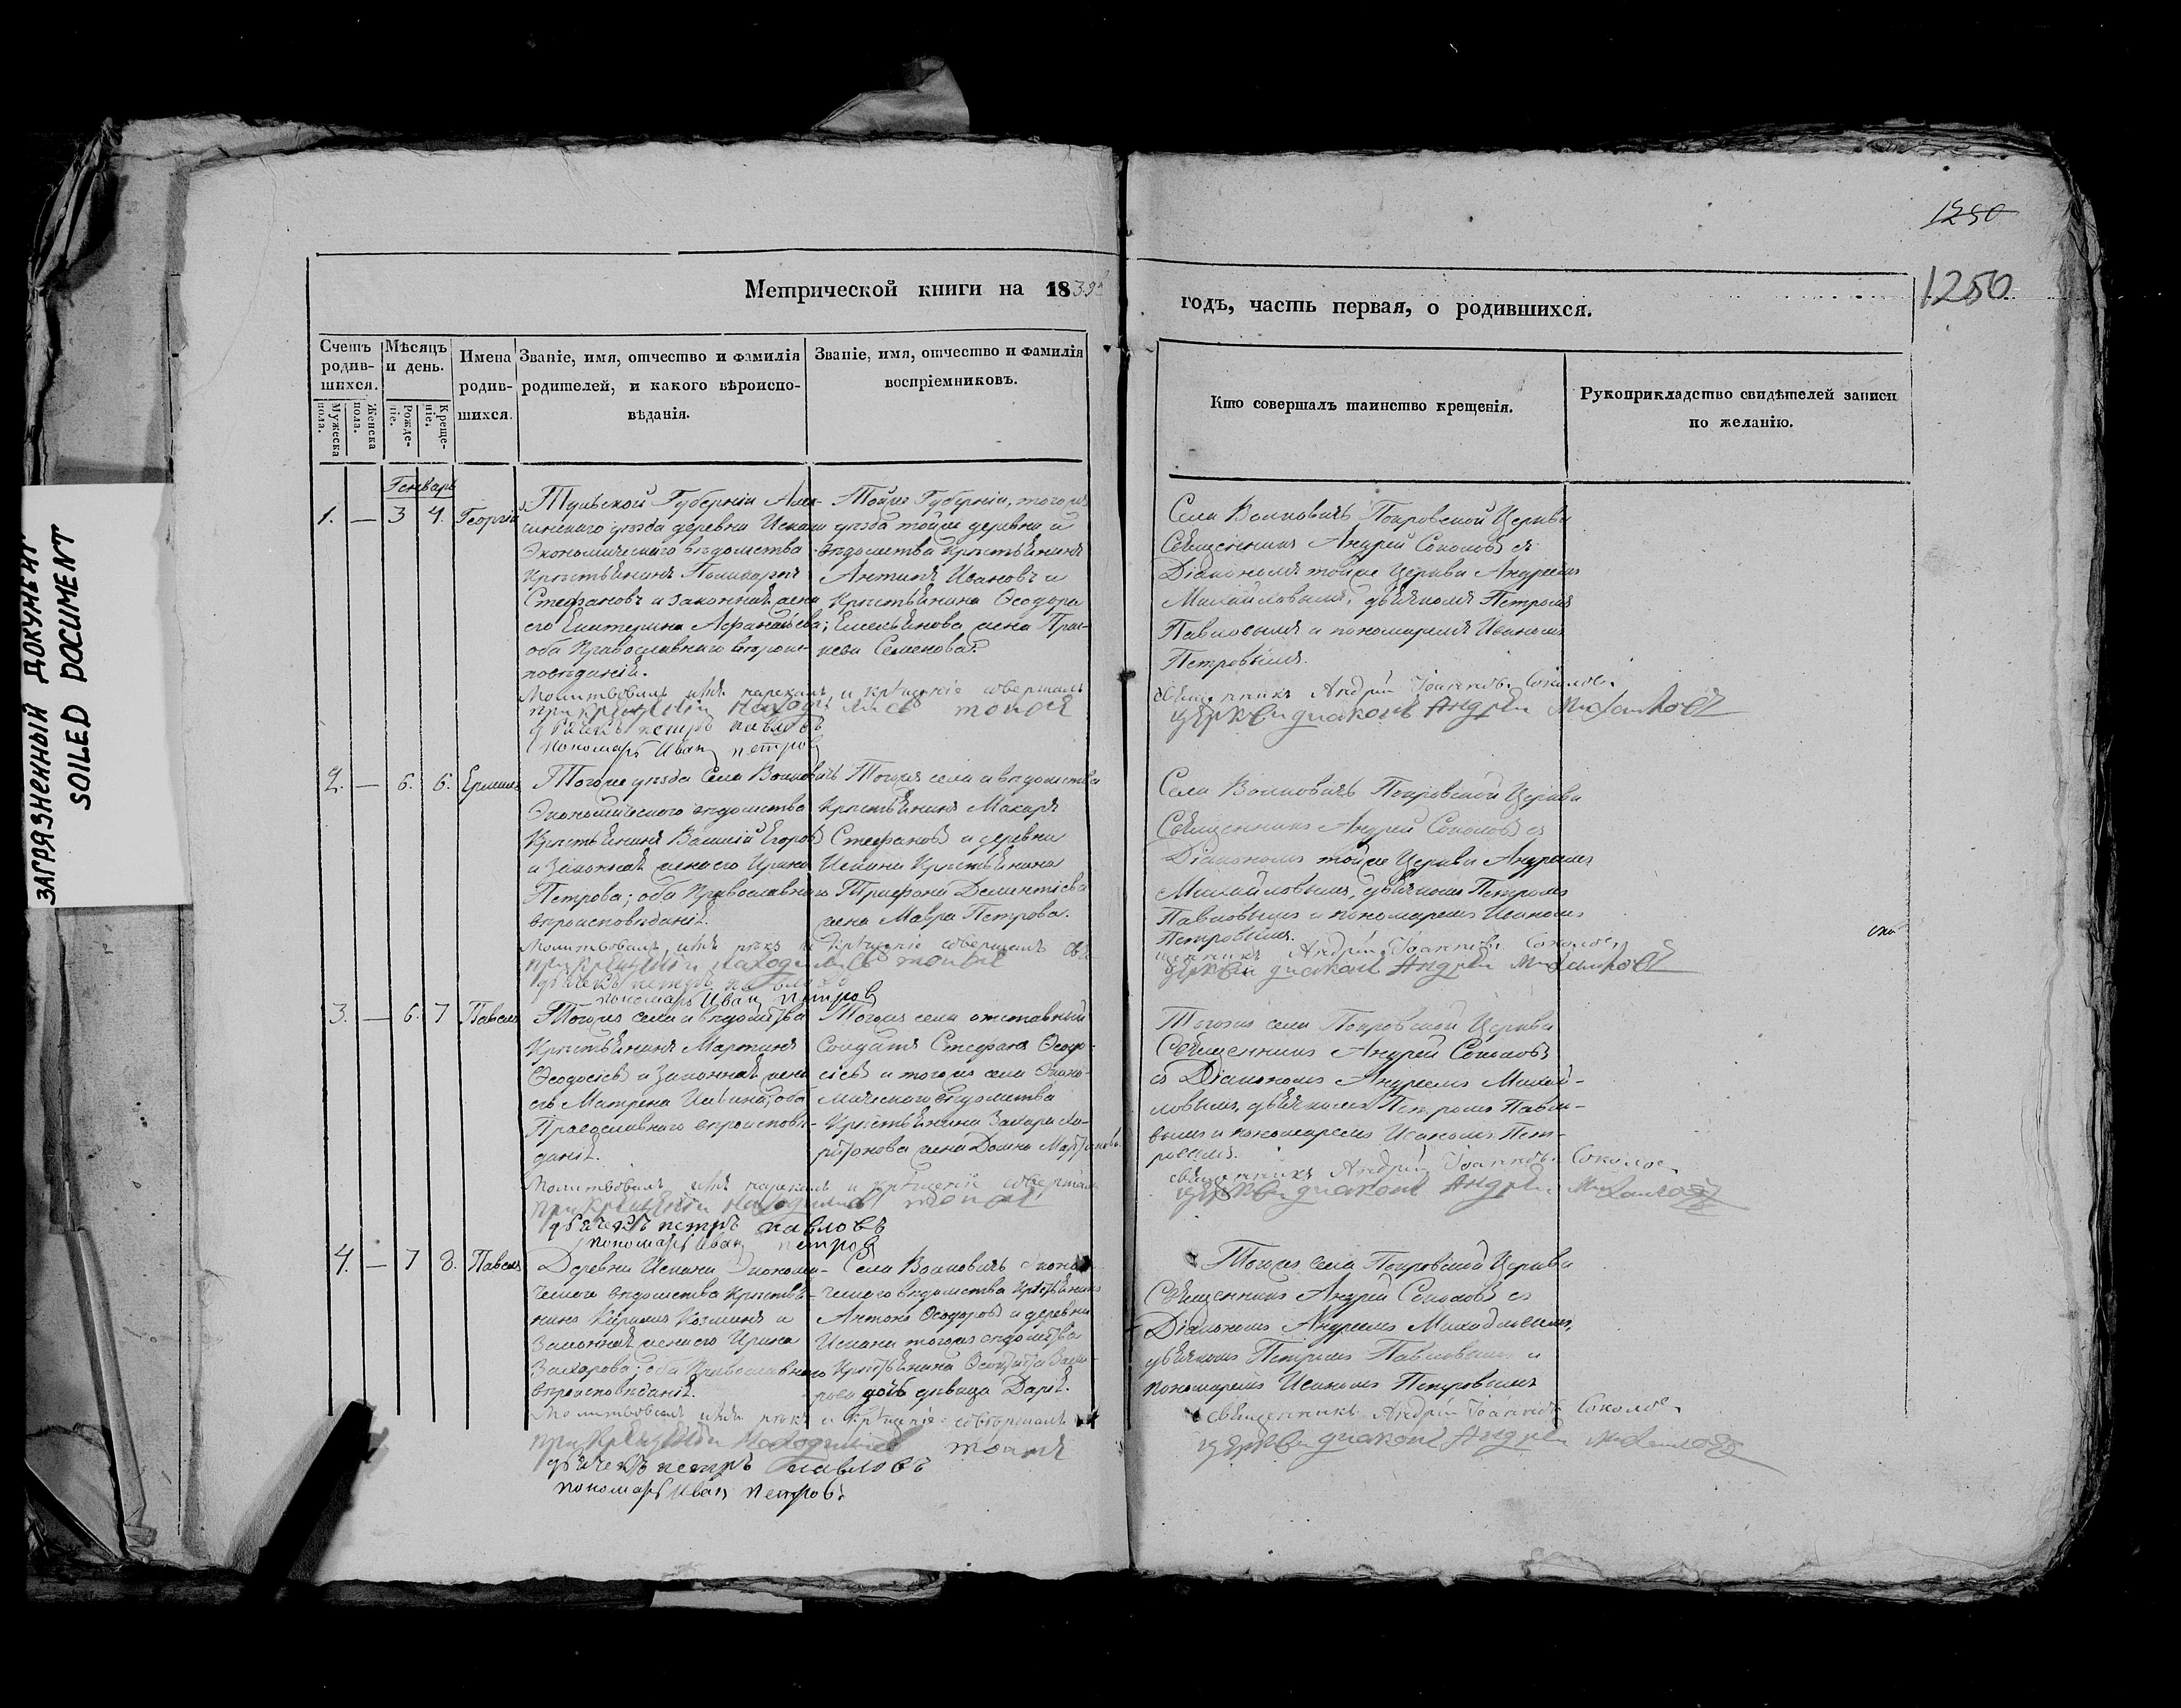 ЗАГРЯЗНЕННЫЙ ДОКУМЕНТ
SOILED DOCUMENT
1250
1250
Метрической книги на 1839й
годъ, часть первая, о родившихся.
Счетъ родившихся.
Мужеска пола.
Женска пола.
Мѣсяцъ и день.
Рожденіе.
Крещеніе.
Имена родившихся.
Званіе, имя, отчество и фамилія
родителей, и какого вѣроиспо-
вѣданія.
Званіе, имя, отчество и фамилія
воспріемниковъ.
Кто совершалъ таинство крещенія.
Рукоприкладство свидѣтелей записи
по желанію.
Генварь
1. — 3 4. Георгій
Тульской Губерніи Але-
ксинскаго уѣзда деревни
Экономическаго вѣдомства
крестьянинъ Поликарпъ
Стефановъ и законная жена
его Екатерина Афанасьева;
оба Православнаго вѣроис-
повѣданія.
Тойже Губерніи, тогоже
уѣзда тойже деревни и
вѣдомства крестьянинъ
Антипъ Ивановъ и
крестьянина Ѳеодора
Емельянова жена Прас-
ковья Семенова.
Села Волковичь Покровской Церкви
Священникъ Андрей Соколовъ съ
Діакономъ тойже Церкви Андреемъ
Михайловымъ, дьячкомъ Петромъ
Павловымъ и пономаремъ Иваномъ
Петровымъ.
Молитвовалъ, имя нарекалъ, и крещеніе совершалъ
священникъ Андрей Іоанновъ Соколовъ
при крещеніи находились тойже
церкви диаконъ Андрей Михайловъ
дьячекъ петръ павловъ
пономарь Иванъ петровъ
2. — 6. 6. Ермилъ
Тогоже уѣзда Села Волковичь
Экономическаго вѣдомства
крестьянинъ Василій Егоровъ
и законная жена его Ирина
Петрова; оба Православнаго
вѣроисповѣданія.
Тогоже села и вѣдомства
крестьянинъ Макаръ
Стефановъ и деревни
крестьянина
Трифона Дементіева
жена Мавра Петрова.
Села Волковичь Покровской Церкви
Священникъ Андрей Соколовъ съ
Діакономъ тойже Церкви Андреемъ
Михайловымъ, дьячкомъ Петромъ
Павловымъ и пономаремъ Иваномъ
Петровымъ.
Молитвовалъ, имя нарекъ и крещеніе совершалъ свя-
щенникъ Андрей Іоанновъ Соколовъ
при крещеніи находились тойже
церкви диаконъ Андрей Михайловъ
дьячекъ петръ павловъ
пономарь Иванъ петровъ
3. — 6. 7 Павелъ
Тогоже села и вѣдомства
крестьянинъ Мартинъ
Ѳеодосіевъ и законная жена
его Матрена оба
Православнаго вѣроисповѣ-
данія.
Тогоже села отставный
солдатъ Стефанъ Ѳеодо-
сіевъ и тогоже села Эконо-
мическаго вѣдомства
крестьянина Захара Ха-
ритонова жена Домна
Тогоже села Покровской Церкви
Священникъ Андрей Соколовъ
съ Діакономъ Андреемъ Михай-
ловымъ, дьячкомъ Петромъ Павло-
вымъ и пономаремъ Иваномъ Пет-
ровымъ.
Молитвовалъ имя нарекалъ и крещеніе совершалъ
священникъ Андрей Іоанновъ Соколовъ
при крещеніи находились тойже
церкви диаконъ Андрей Михайловъ
дьячекъ петръ павловъ
пономарь Иванъ петровъ
4. — 7 8. Павелъ
Деревни Экономи-
ческаго вѣдомства крестья-
нинъ Козминъ и
законная жена его Ирина
Захарова; оба Православнаго
вѣроисповѣданія.
Села Волковичь Эконом-
ческаго вѣдомства крестьянинъ
Антонъ Ѳеодоровъ и деревни
тогоже вѣдомства
крестьянина
дочь дѣвица Дарья.
Тогоже села Покровской Церкви
Священникъ Андрей Соколовъ съ
Діакономъ Андреемъ Михайловымъ,
дьячкомъ Петромъ Павловымъ и
пономаремъ Иваномъ Петровымъ
Молитвовалъ имя нарекъ и крещеніе совершалъ
священникъ Андрей Іоанновъ Соколовъ
при крещеніи находились тойже
церкви диаконъ Андрей Михайловъ
дьячекъ петръ павловъ
пономарь Иванъ Петровъ